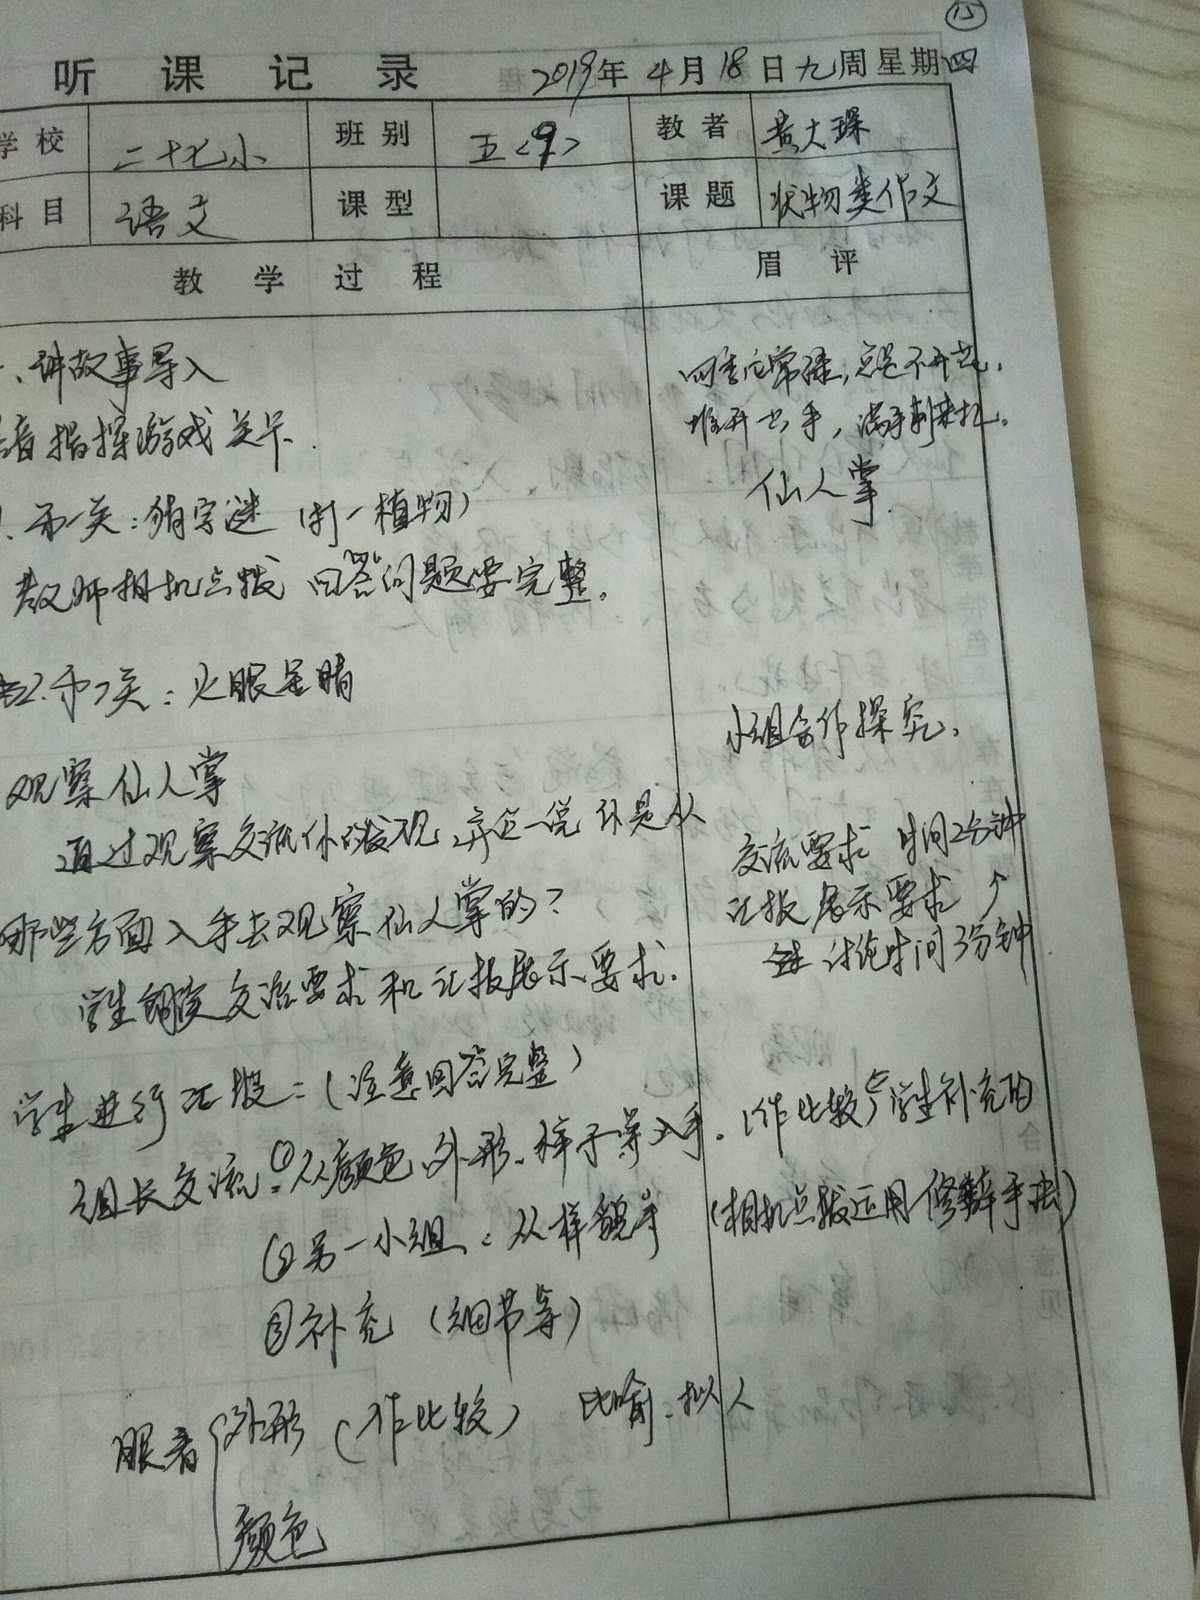 15
听课记录 2019年4月18日九周星期四
学校 二十七小 班别 五<9> 教者 黄大琛
科目 语文 课型 课题 状物类作文
教学过程 眉评
、讲故事导入
指挥游戏关卡.
四季应常绿,总是不开花.
推开 手,满手刺来扎.
仙人掌
1.第一关:猜字谜(打一植物)
教师相机点拨 回答问题要完整。
2.第二关:火眼金睛
小组合作探究.
观察仙人掌
通过观察交流你的发现,并说一说你是从
哪些方面入手去观察仙人掌的?
交流要求 时间2分钟
汇报展示要求↑
讨论时间3分钟
学生朗读交流要求和汇报展示要求.
学生进行汇报:(注意回答完整)
组长交流:①从颜色、外形、样子等入手.(作比较)学生补充的
②另一小组:从样貌 (相机点拨运用修辞手法)
③补充(细节等)
眼看{外形(作比较) 比喻、拟人
颜色